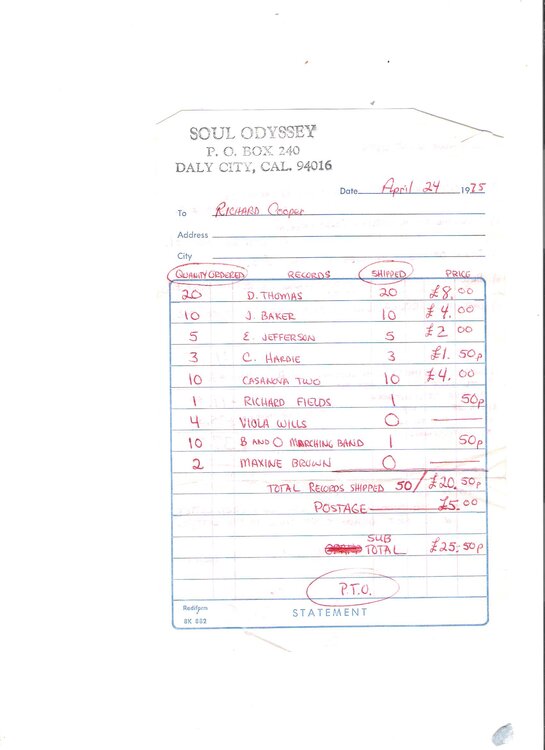 SOUL ODYSSEY
P. O. BOX 240
DALY CITY, CAL. 94016
Date April 24 1975
To RICHARD Cooper
Address
City
QUANTITY ORDERED RECORDS SHIPPED PRICE
20 D. THOMAS 20 £8.00
10 J. BAKER 10 £4.00
5 E. JEFFERSON 5 £2 00
3 C. HARDIE 3 £1.50p
10 CASANOVA TWO 10 £4.00
1 RICHARD FIELDS 1 50p
4 VIOLA WILLS 0 —
10 B AND O MARCHING BAND 1 50p
2 MAXINE BROWN 0 —
TOTAL RECORDS SHIPPED 50/£20.50p
POSTAGE — £5.00
SUB
TOTAL £25.50p
P.T.O.
Rediform
8K 882
STATEMENT